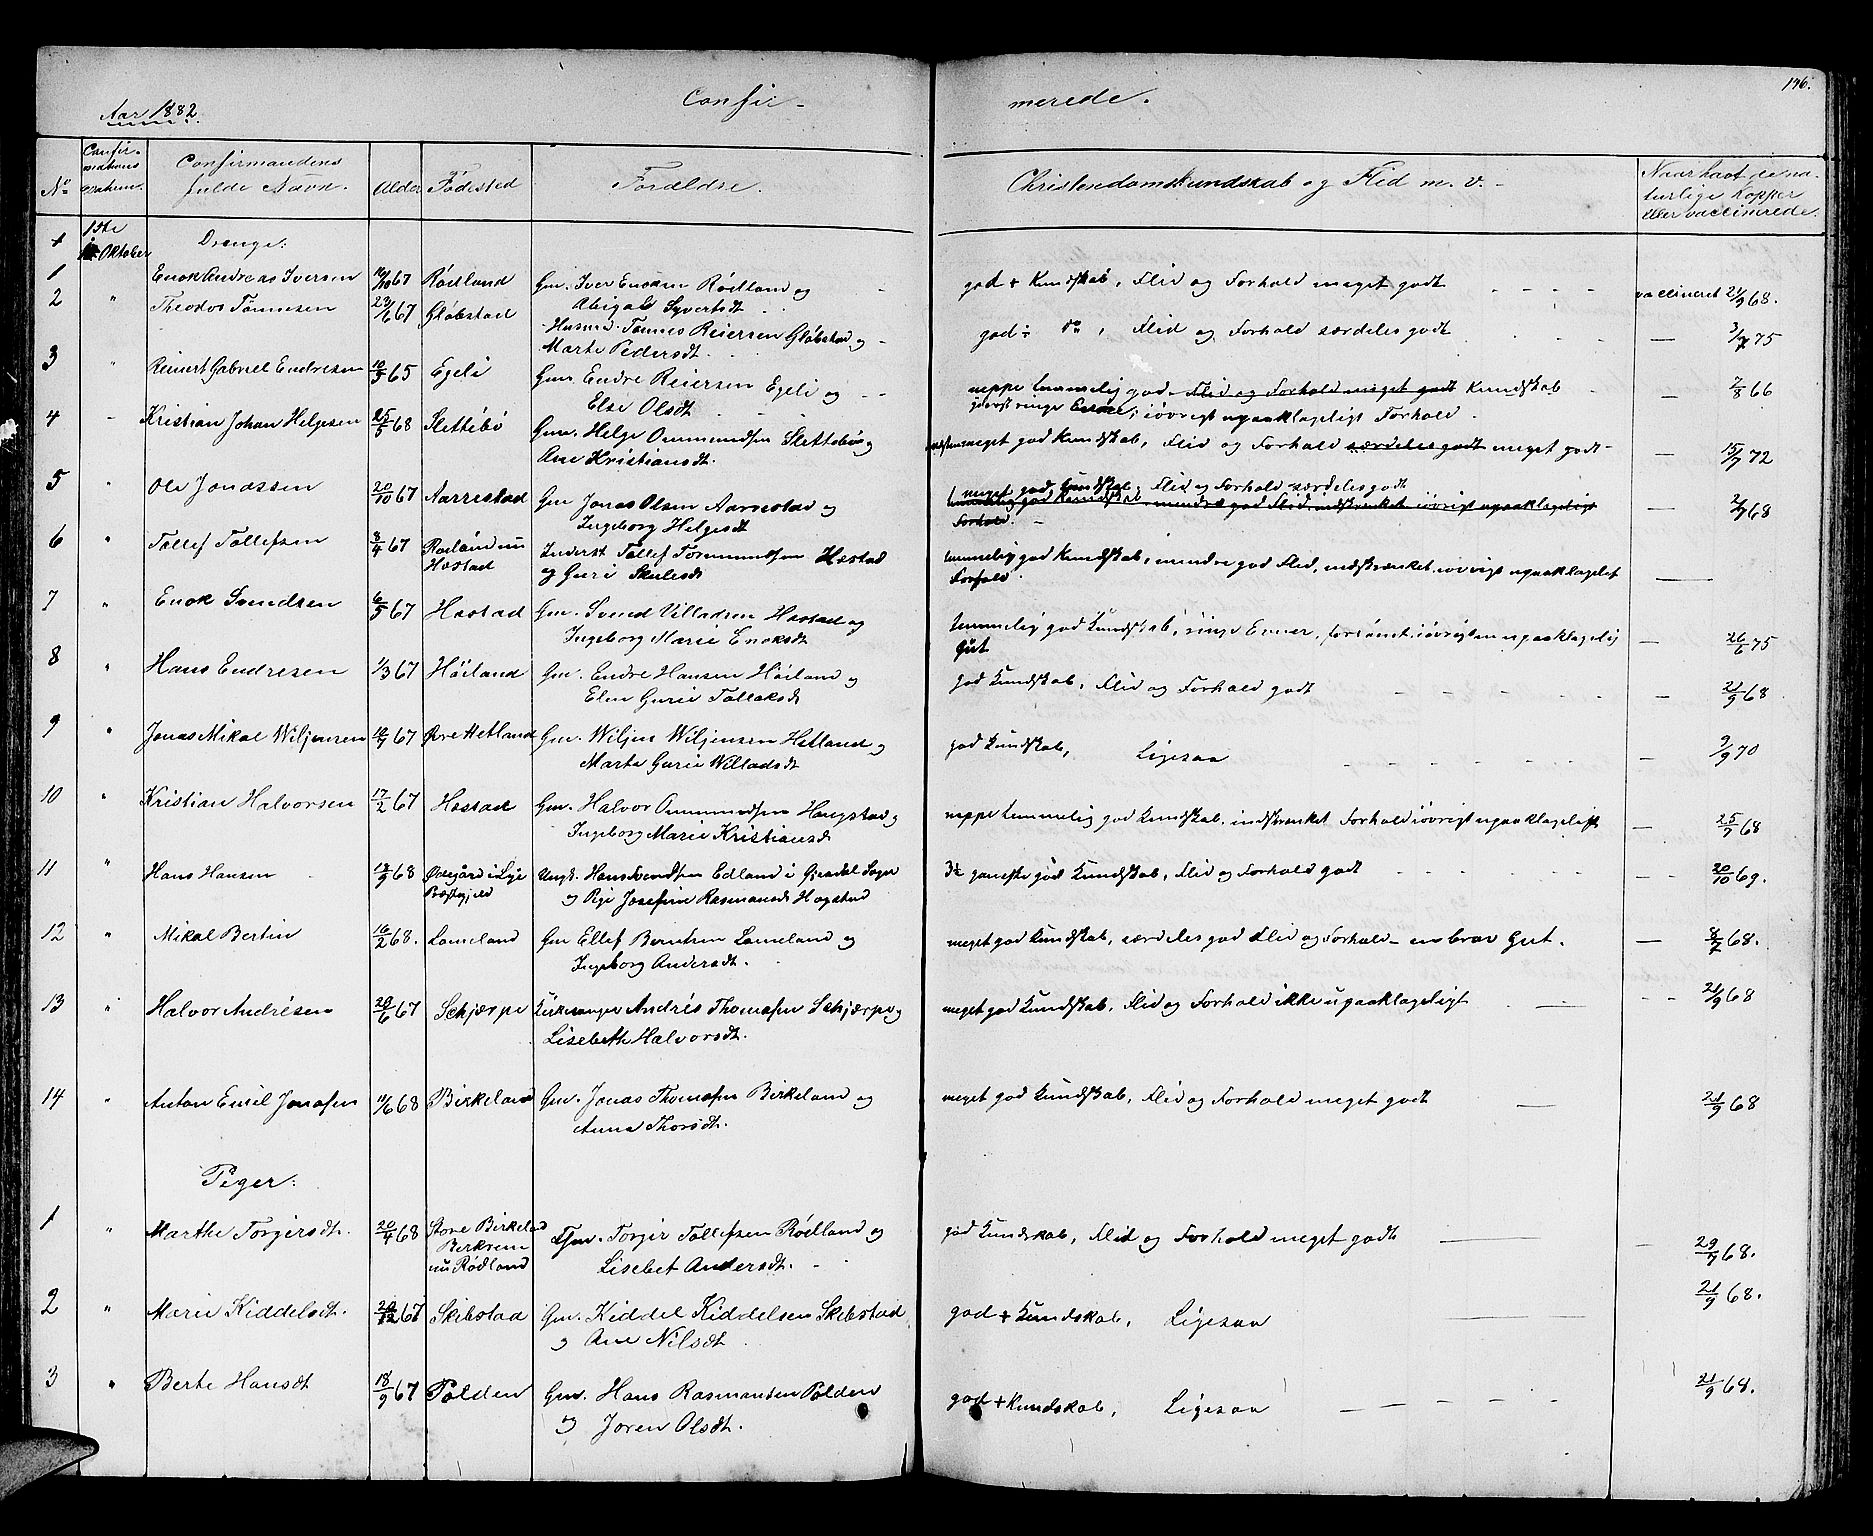 146.
Aar 1882.
Confir-
merede.
No
Confir-
mations
Confirmandens
fulde Navn.
Alder
Födested
Forældre.
Christendomskundskab og Flid m. v.
Naar havt de na-
turlige Kopper
eller vaccinerede.
1ste
Oktober
Drenge:
1 Enok Andreas Iversen 67 Rödland Gm. Iver Enoksen Rödland og
Abigael Syvertsdt.
god + Kundskab, Flid og Forhold meget godt
vaccineret 21/9 68.
2 " Theodor Tönnesen 67 Glöbstad Husmd. Tönnes Reiersen Glöbstad og
Marte Pedersdt.
god ÷ do, Flid og Forhold særdeles godt — 75
3 " Reinert Gabriel Endresen 65 Egeli Gmr Endre Reiersen Egeli og
Else Olsdt
neppe temmelig god Flid og Forhold meget godt Kundskab
yderst ringe Evner, iövrigt upaaklageligt Forhold. — 7/8 66
4 Kristian Johan Helgesen 25/5 68 Slettebö Gm. Helge Ommundsen Slettebö og
Ane Kristiansdt.
næsten meget god Kundskab, Flid og Forhold særdeles godt meget godt — 15/7 72
5 " Ole Jonassen 20/10 67 Aarrestad Gm Jonas Olsen Aarrestad og
Ingeborg Helgesdt
meget god Kundskab, Flid og Forhold særdeles godt
temmelig god Kundskab, mindre god Flid, indskrænket iövrigt upaaklageligt
Forhold. — 68
6 " Tollef Tollefsen 8/4 67 Rodland nu
Hæstad
Inderst Tollef Tormundsen Hæstad
og Guri Skulesdt
temmelig god Kundskab, mindre god Flid, indskrænket iövrigt upaaklageligt
Forhold. —
7 " Enok Svendsen 6/5 67 Hæstad Gm. Svend Villadsen Hæstad og
Ingeborg Marie Enoksdt
temmelig god Kundskab, ringe Evner, iövrigt en upaaklagelig
Gut — 26/6 75
8 " Hans Endresen 1/3 67 Höiland Gm. Endre Hansen Höiland og
Elen Gurie Tollaksdt
god Kundskab, Flid og Forhold godt — 21/9 68
9 " Jonas Mikal Wiljemsen 67 Övre Hetland Gm. Wiljem Wiljemsen Hetland og
Marta Gurie Willadsdt
god Kundskab, Ligesaa — 9/9 70
10 " Kristian Halvorsen 17/2 67 Hæstad Gm. Halvor Ommundsen Haugstad og
Ingeborg Marie Kristiansdt
neppe temmelig god Kundskab, indskrænket Forhold iövrigt upaaklageligt — 68
11 " Hans Hansen 68 Ödegård i Lye
Præstegjeld
Ungk. Hans Svendsen Edland i Gjesdal Sogn
og Pige Josefine Rasmusdt Hogstad
ganske god Kundskab, Flid og Forhold godt — 20/10 69.
12 " Mikal Bertin 16/2 68. Lomeland Gm Ellef Berntsen Lomeland og
Ingeborg Andersdt.
meget god Kundskab, særdeles god Flid og Forhold — en brav Gut. — 68.
13 " Halvor Andrésen 67 Sckjærpe Kirkesanger Andrés Thomasen Sckjærpe og
Lisebeth Halvorsdt.
meget god Kundskab, Flid og Forhold ikke upaaklageligt — 21/9 68
14 " Anton Emil Jonasen 68 Birkeland Gm. Jonas Thomasen Birkeland og
Anna Thorsdt.
meget god Kundskab, Flid og Forhold meget godt — 21/9 68
Piger:
1 " Marthe Torgersdt. 20/4 68 Store Birkeland
Birkrem
nu Rödland
Gm. Torger Tollefsen Rödland og
Lisebet Andersdt.
god Kundskab, Flid og Forhold meget godt — 68.
2 " Marie Kiddelsdt. 67 Skibstad Gm. Kiddel Kiddelsen Skibstad
og Ane Nilsdt.
god + Kundskab, Ligesaa — 21/9 68.
3 " Berte Hansdt 18/9 67 Polden Gm. Hans Rasmussen Polden
og Joren Olsdt.
god + Kundskab, Ligesaa — 21/9 68.